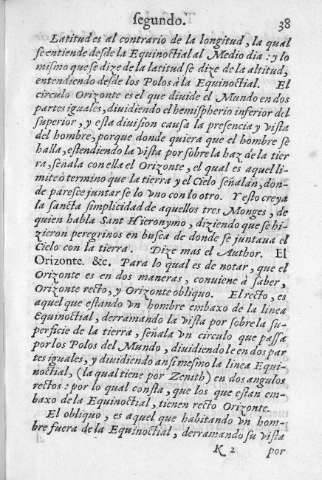 segundo. 38
Latitud es al contrario de la longitud, la qual
se entiende desde la Equinoctial al Medio dia: y lo
mismo que se dize de la latitud se dize de la altitud,
entendiendo desde los Polos à la Equinoctial. El
circulo Orizonte es el que divide el Mundo en dos
partes iguales, dividiendo el hemispherio inferior del
superior, y esta division causa la presencia y vista
del hombre, porque donde quiera que el hombre se
halla, estendiendo la vista por sobre la haz de la tier
ra, señala con ella el Orizonte, el qual es aquel li-
mite ò termino que la tierra y el Cielo señalan, don-
de paresce juntarse lo vno con lo otro. Y esto creya
la sancta simplicidad de aquellos tres Monges, de
quien habla Sant Hieronymo, diziendo que se hi-
zieron peregrinos en busca de donde se juntaua el
Cielo con la tierra. Dize mas el Author. El
Orizonte. &c. Para lo qual es de notar, que el
Orizonte es en dos maneras, conviene à saber,
Orizonte recto, y Orizonte obliquo. El recto, es
aquel que estando vn hombre embaxo de la linea
Equinoctial, derramando la vista por sobre la su-
perficie de la tierra, señala vn circulo que passa
por los Polos del Mundo, dividiendole en dos par
tes iguales, y dividiendo ansi mesmo la linea Equi-
noctial, (la qual tiene por Zenith) en dos angulos
rectos: por lo qual consta, que los que estan em-
baxo de la Equinoctial, tienen recto Orizonte.
El obliquo, es aquel que habitando vn hom-
bre fuera de la Equinoctial, derramando su vista
K 2 por